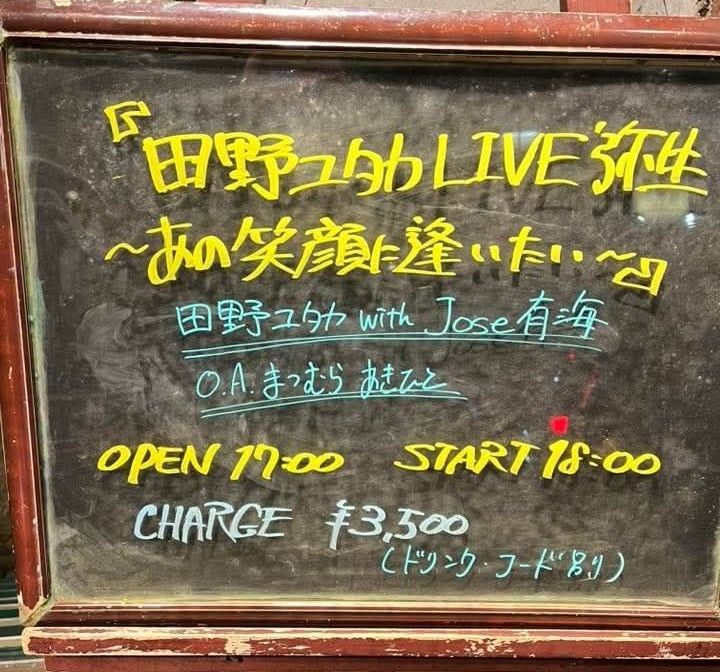 『田野ユタカLIVE 弥生
～あの笑顔に逢いたい～』
田野ユタカ with Jose有海
O.A. まつむら あきひと
OPEN 17:00 START 18:00
CHARGE ¥3,500
(ドリンク・フード別)